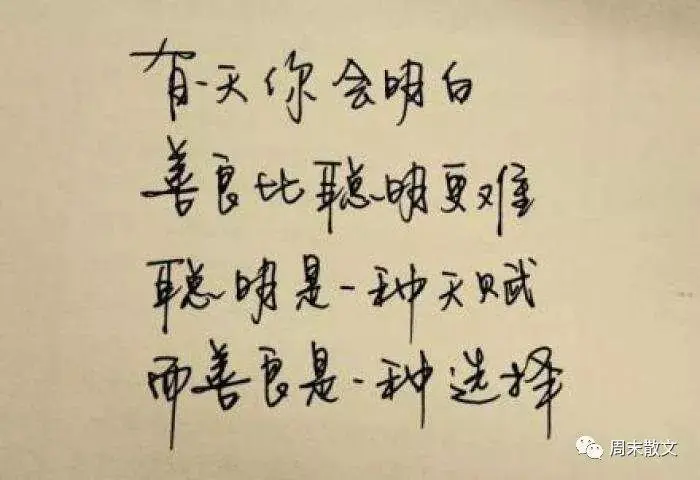 有一天你会明白
善良比聪明更难
聪明是一种天赋
而善良是一种选择
周末散文